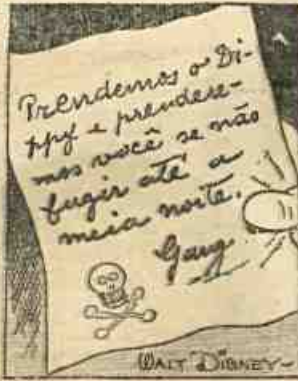 Prendemos o Di-
ppy e prendere-
mos você se não
fugir até a
meia noite.
Gang
WALT DISNEY